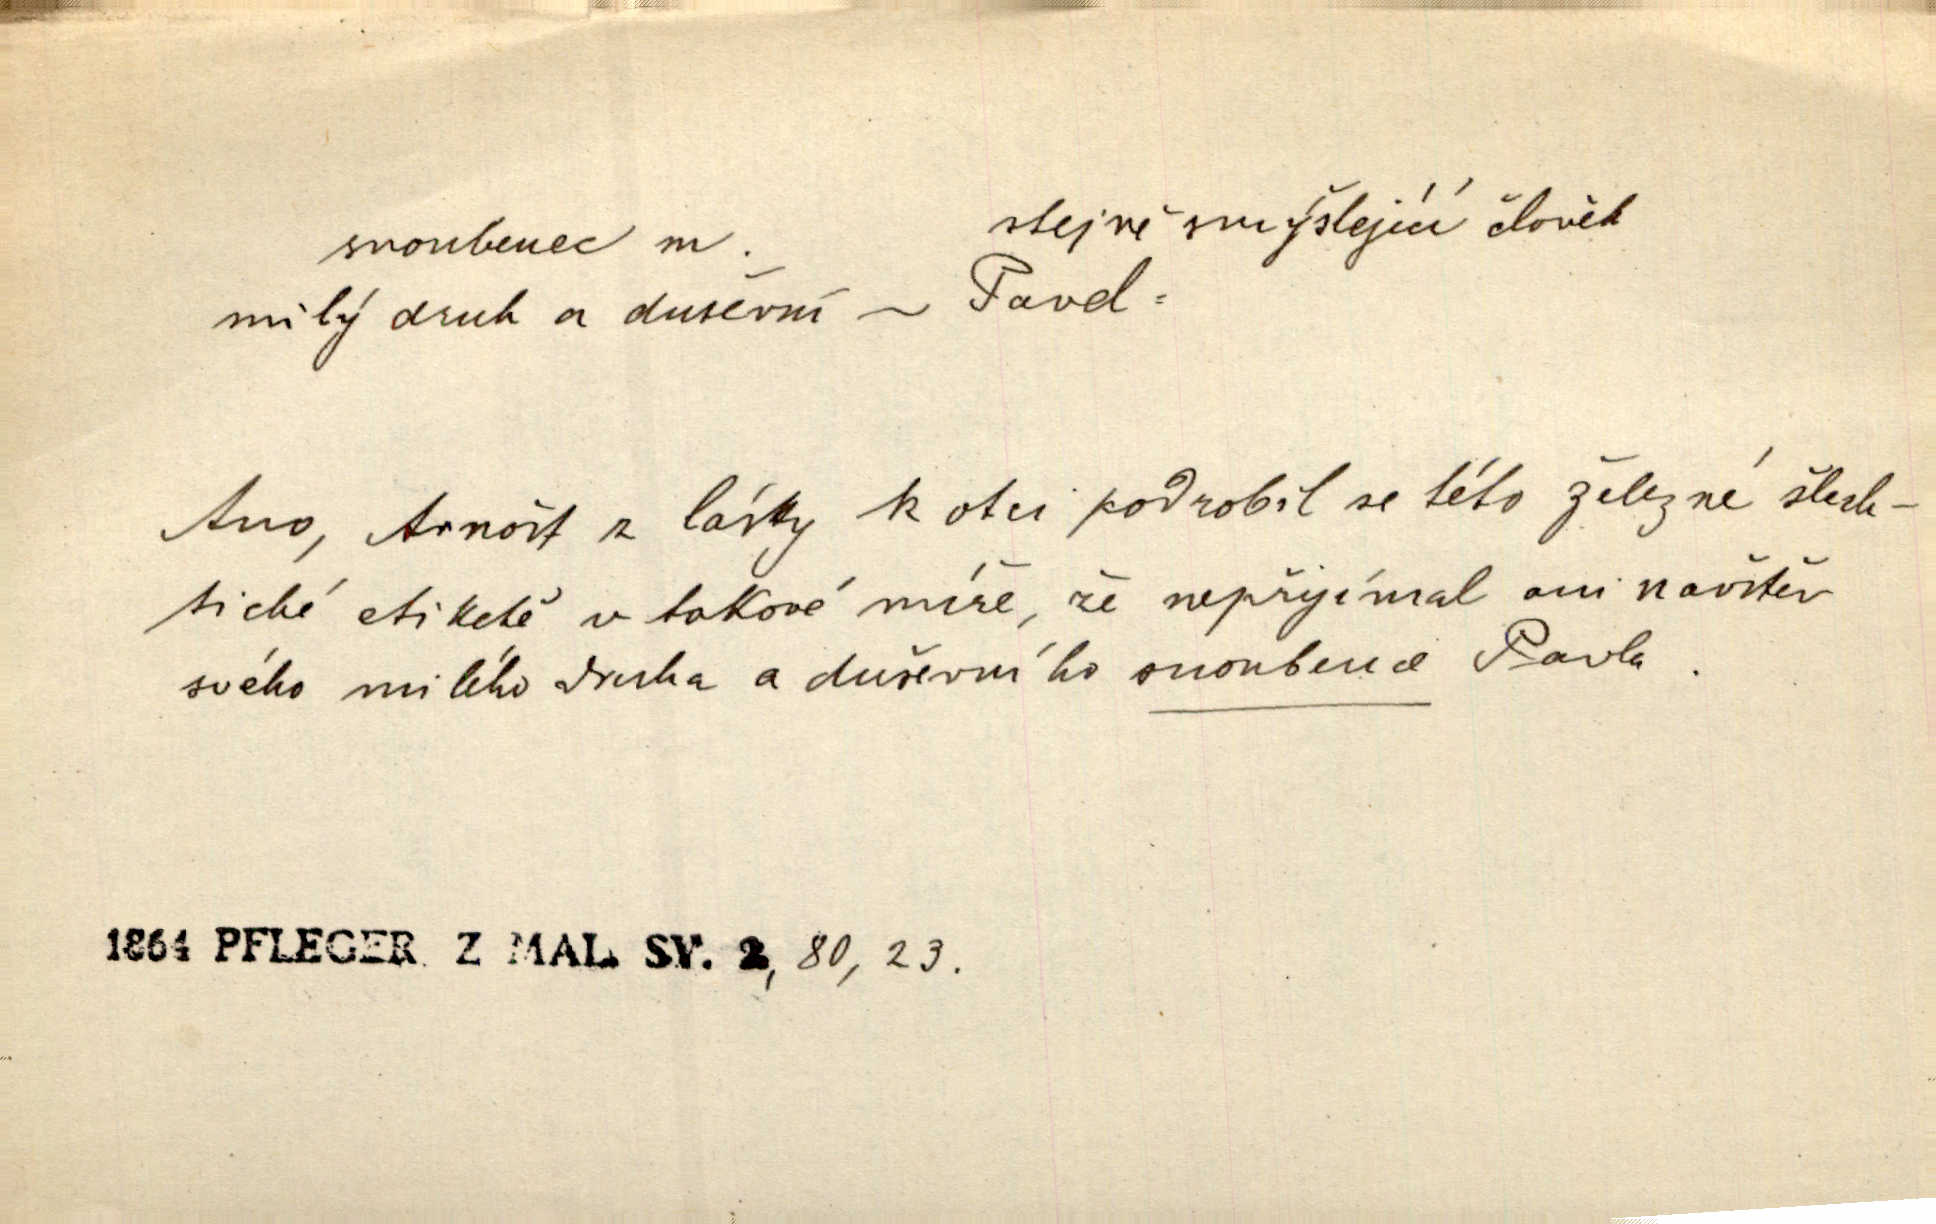 snoubenec m.
stejně smýšlející člověk
milý druh a duševní ~ Pavel =
Ano, Arnošt z lásky k otci podrobil se této železné šlech-
tické etiketě v takové míře, že nepřijímal ani návštěv
svého milého druha a duševního snoubence Pavla.
1864 PFLEGER Z MAL. SV. 2, 80, 23.